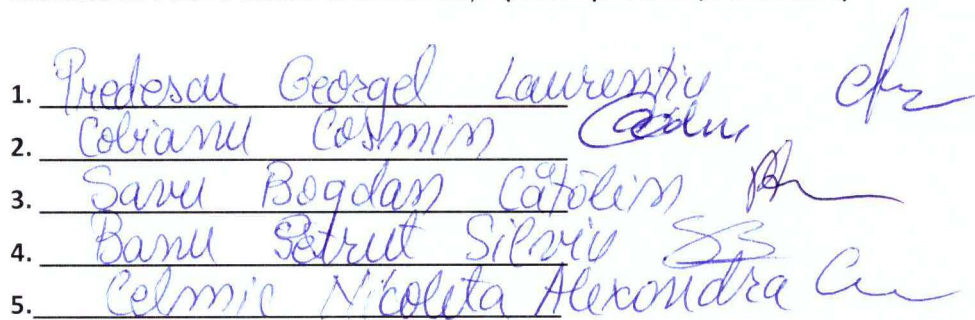 1. Predescu Georgel Laurențiu
2. Cobianu Cosmin
3. Savu Bogdan Cătălin
4. Banu Petruț Silviu
5. Celmic Nicoleta Alexandra